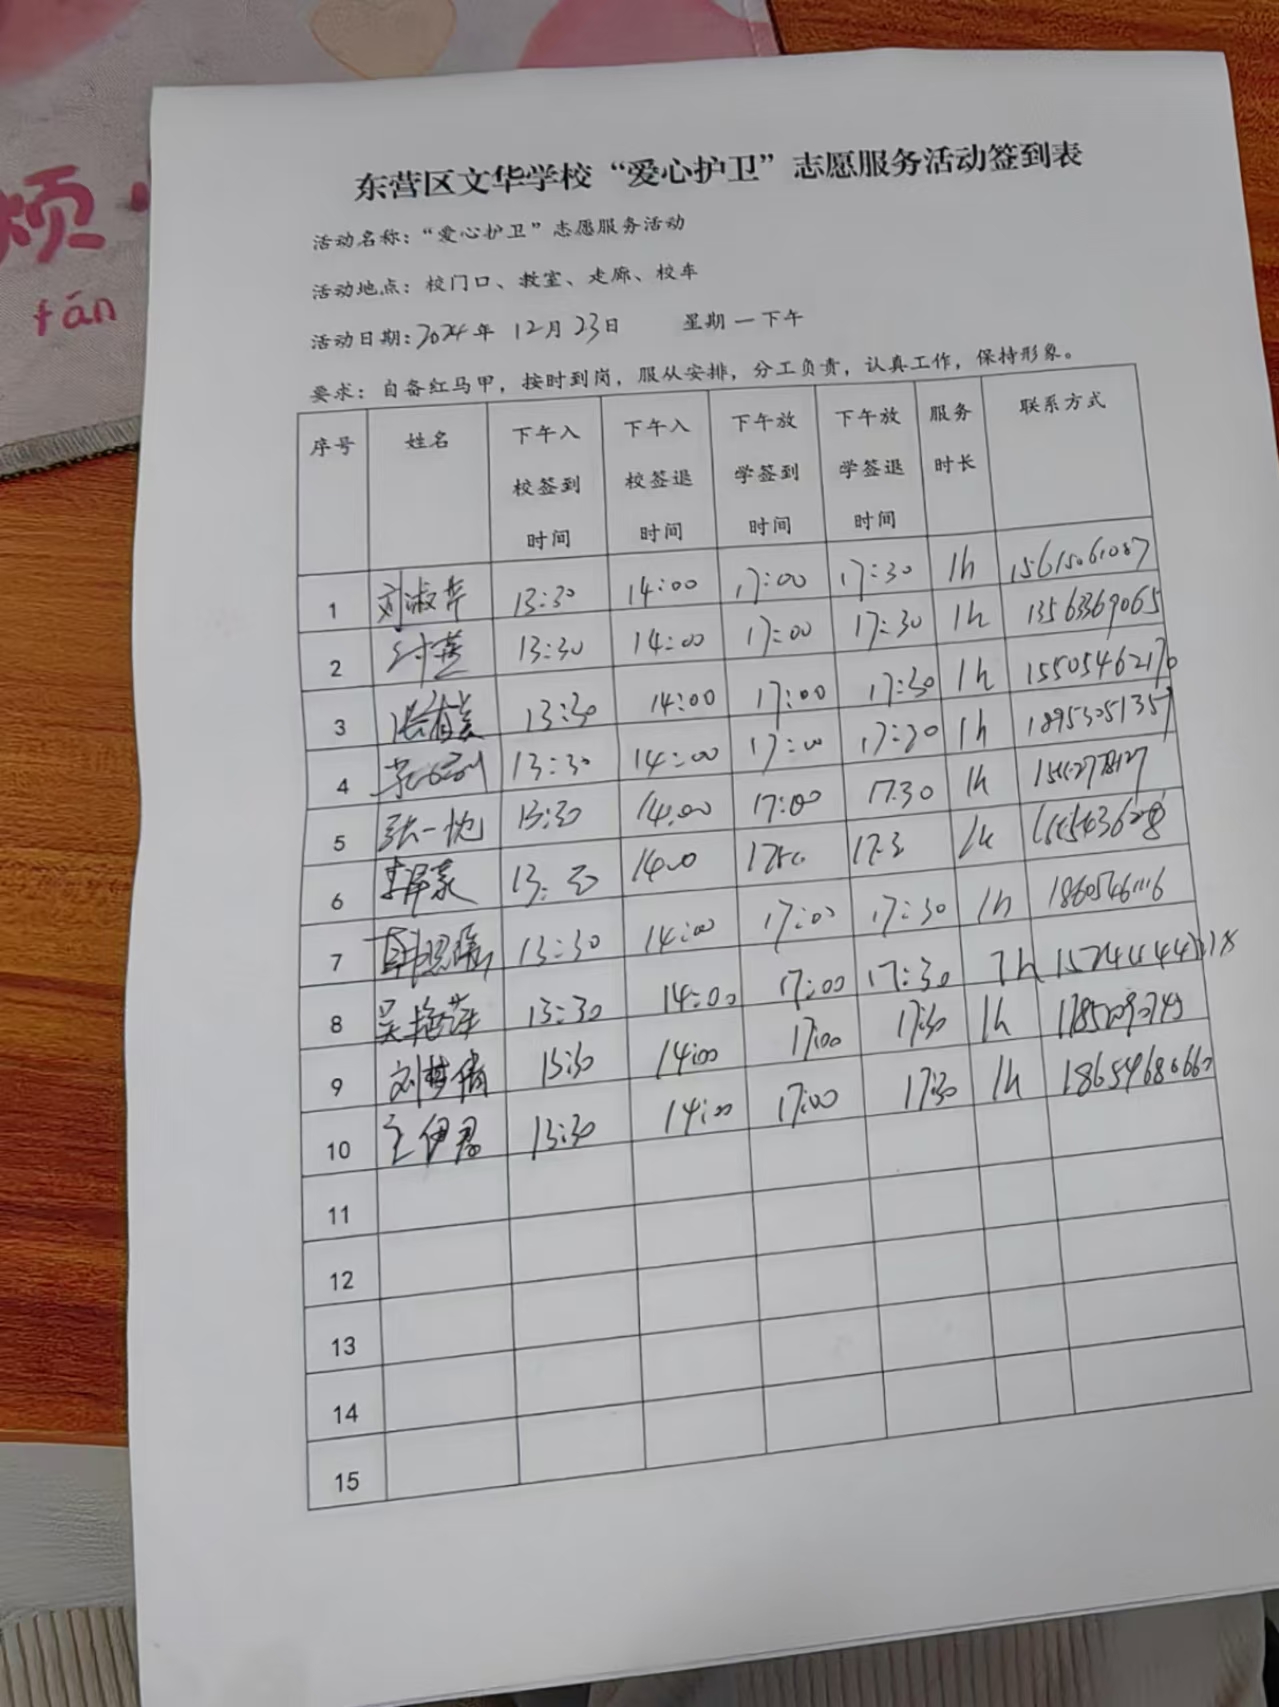 烦
fán
东营区文华学校“爱心护卫”志愿服务活动签到表
活动名称：“爱心护卫”志愿服务活动
活动地点：校门口、教室、走廊、校车
活动日期：2024年 12月 23日 星期一下午
要求：自备红马甲，按时到岗，服从安排，分工负责，认真工作，保持形象。
序号 姓名 下午入校签到时间 下午入校签退时间 下午放学签到时间 下午放学签退时间 服务时长 联系方式
1 刘淑弈 13:30 14:00 17:00 17:30 1h 15615061087
2 13:30 14:00 17:00 17:30 1h 13563369065
3 13:30 14:00 17:00 17:30 1h 15505462170
4 13:30 14:00 17:00 17:30 1h 18953051357
5 张一忱 13:30 14:00 17:00 17.30 1h
6 李泽豪 1h
7 13:30 14:00 17:00 17:30 1h
8 吴艳萍 13:30 14:00 17:00 17:30
9 刘梦倩 13:30 14:00 17:00 17:30 1h
10 王伊君 13:30 14:00 17:00 17:30 1h 18654686660
11
12
13
14
15